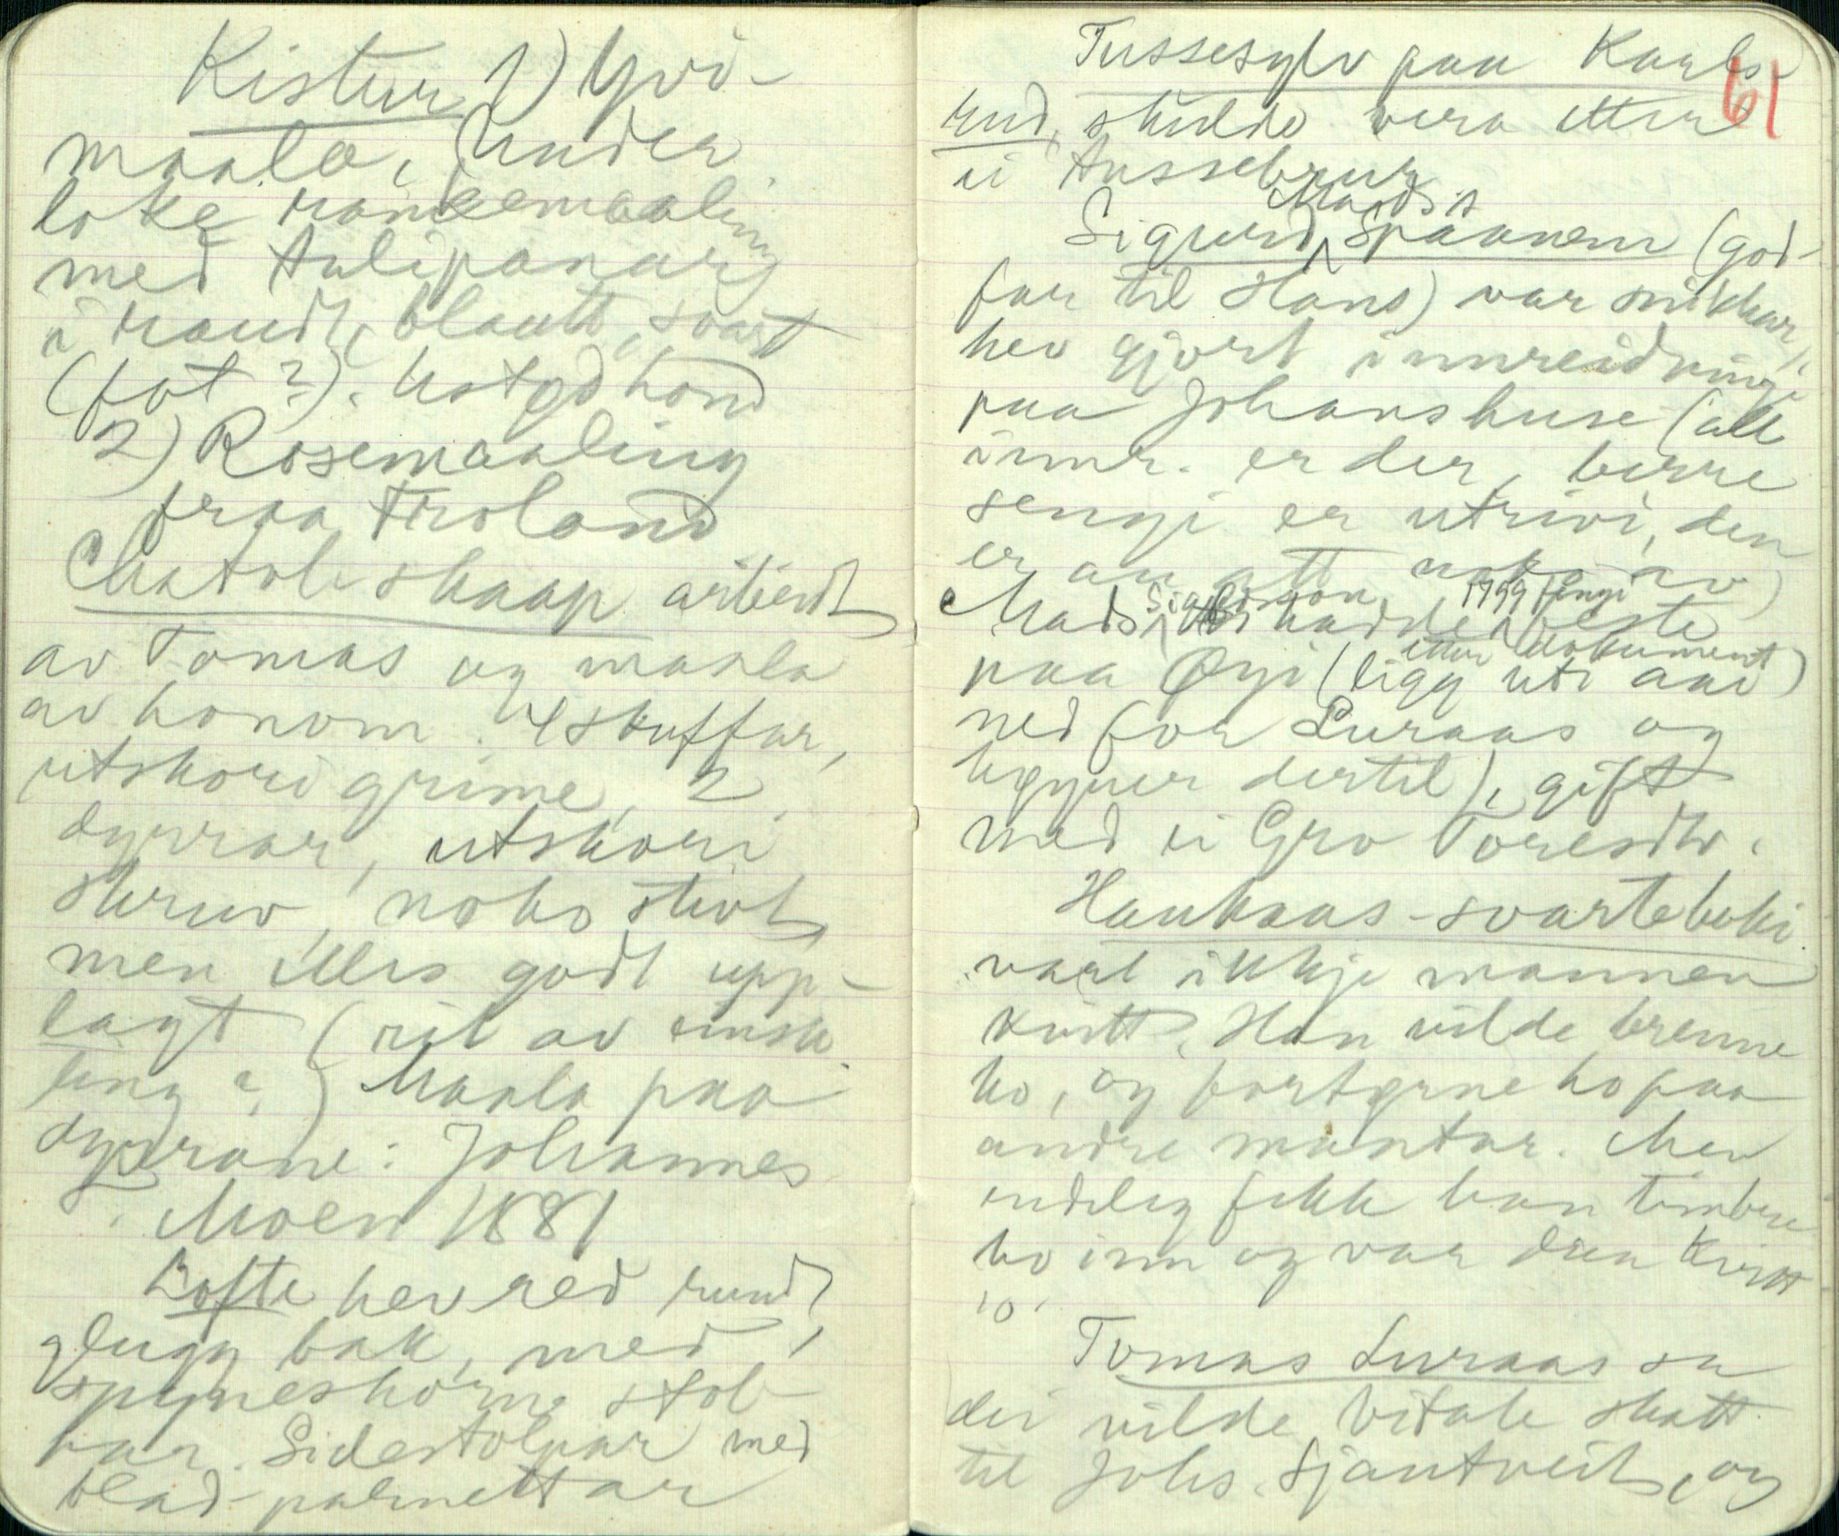 Kistur 1) Yvi-
maala, under
loke rankemaaling
med tulipanar
i raudt, blaatt, svart
(fot?). Notgd hond
2) Rosemaaling
fraa Troland
Chatolskaap arbeidt
av Tomas og maala
av honom. 4 skuffar,
utskori grime, 2
dyrrar, utskori
skruv, noko stivt
men elles godt upp-
lagt (rit av
ling?) Maala paa
dyrrane: Johannes
T. Moen 1881
Lofte hev red rundt,
glugg bak, med
spyneshorn stol-
par. Sidestolpar med
blad-palmettar
61
Tussesylv paa Kaases-
rud, skulde vera etter
ei tussebrur
Sigurd Madsis Spaanem (god-
far til Hans) var snikkar,
hev gjort innreidningi
paa Johanshuse (all
innr. er der, berre
sengi er utrivi, den
er au att noko av)
Mads Sigurdson hadde 1799 fengi feste
paa Øyi (etter dokument) (ligg uti aai
ned for Luraas og
høyrer dertil), gift
med ei Gro Toresdtr.
Haukaas-svarteboki
vart ikkje mannen
kvitt. Han vilde brenne
ho, og fortyrne ho paa
andre maatar. Men
endeleg fekk han timbre
ho inn og var daa kvitt
'o.
Tomas Luraas sa
dei vilde betale skatt
til Johs. Sjautveit, og